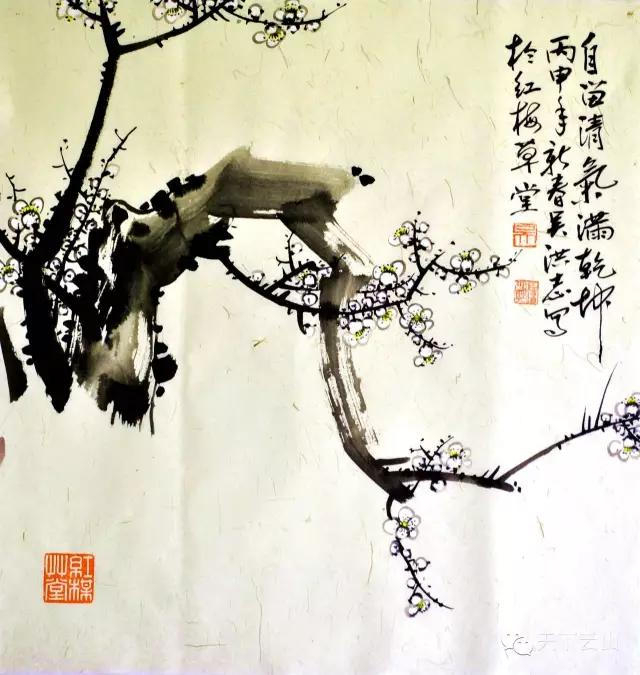 自留清氣滿乾坤
丙申年新春吴洪志写
於红梅草堂
紅楳艸堂
天下云山